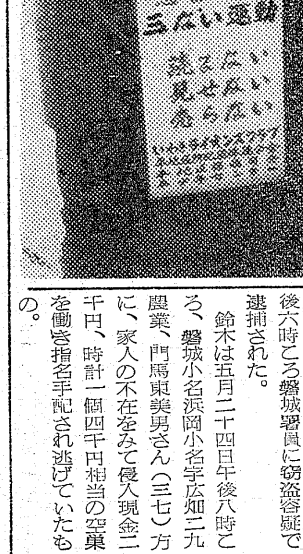 三ない運動
読まない
見せない
売らない
いわきライオンズクラブ
後六時ころ磐城署員に窃盗容疑で
逮捕された。
鈴木は五月二十四日午後八時こ
ろ、磐城小名浜岡小名字広畑二九
農業、門馬東美男さん（三七）方
に、家人の不在をみて侵入現金二
千円、時計一個四千円相当の空巣
を働き指名手配され逃げていたも
の。